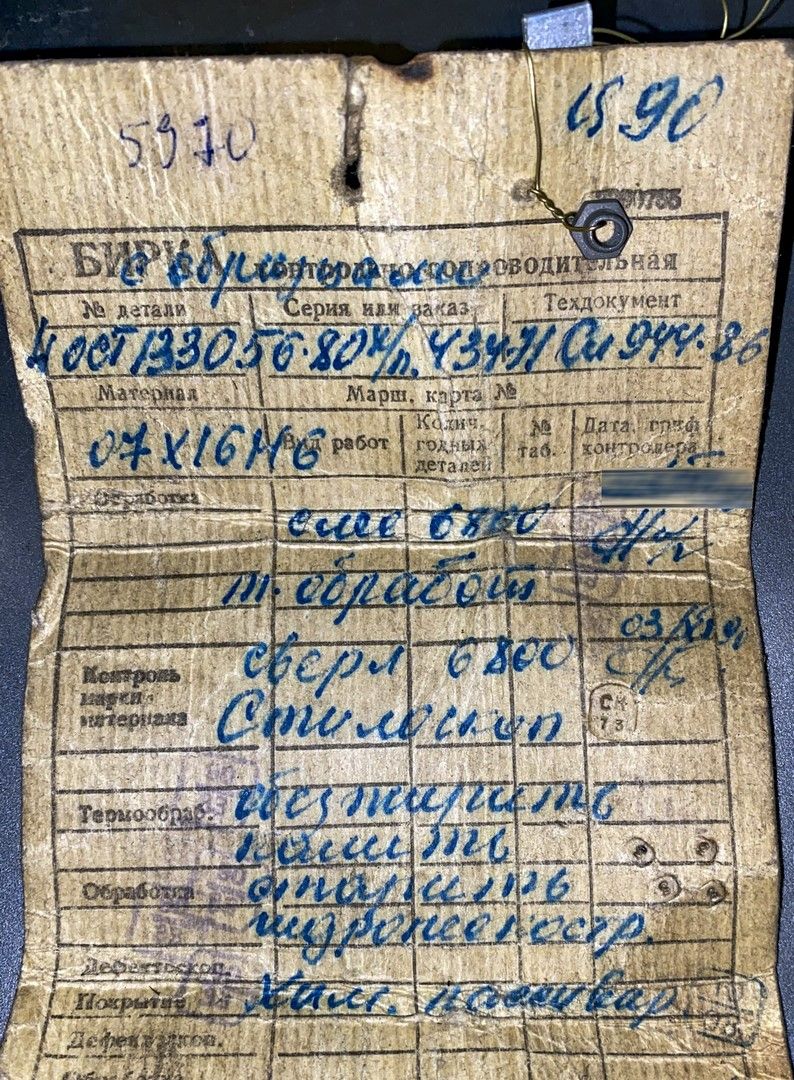 5970
1590
БИРКА контрольно-сопроводительная
с образцами
№ детали Серия или заказ Техдокумент
4 ОСТ 1 33056-80 х/п. 434-71 Си 944-86
Материал Марш. карта №
07Х16Н6
Вид работ Колич. годных деталей № таб. Дата, гриф контролера
Обработка
слес 6800
т. обработ
03/XII 90
сверл 6800
Контроль марки материала
Стилоскоп
СК 73
Термообраб. обезжирить
калить
Обработка отпарить
гидропескостр.
Дефектоскоп.
Покрытие Хим. пассивар
Дефектоскоп.
Обработка